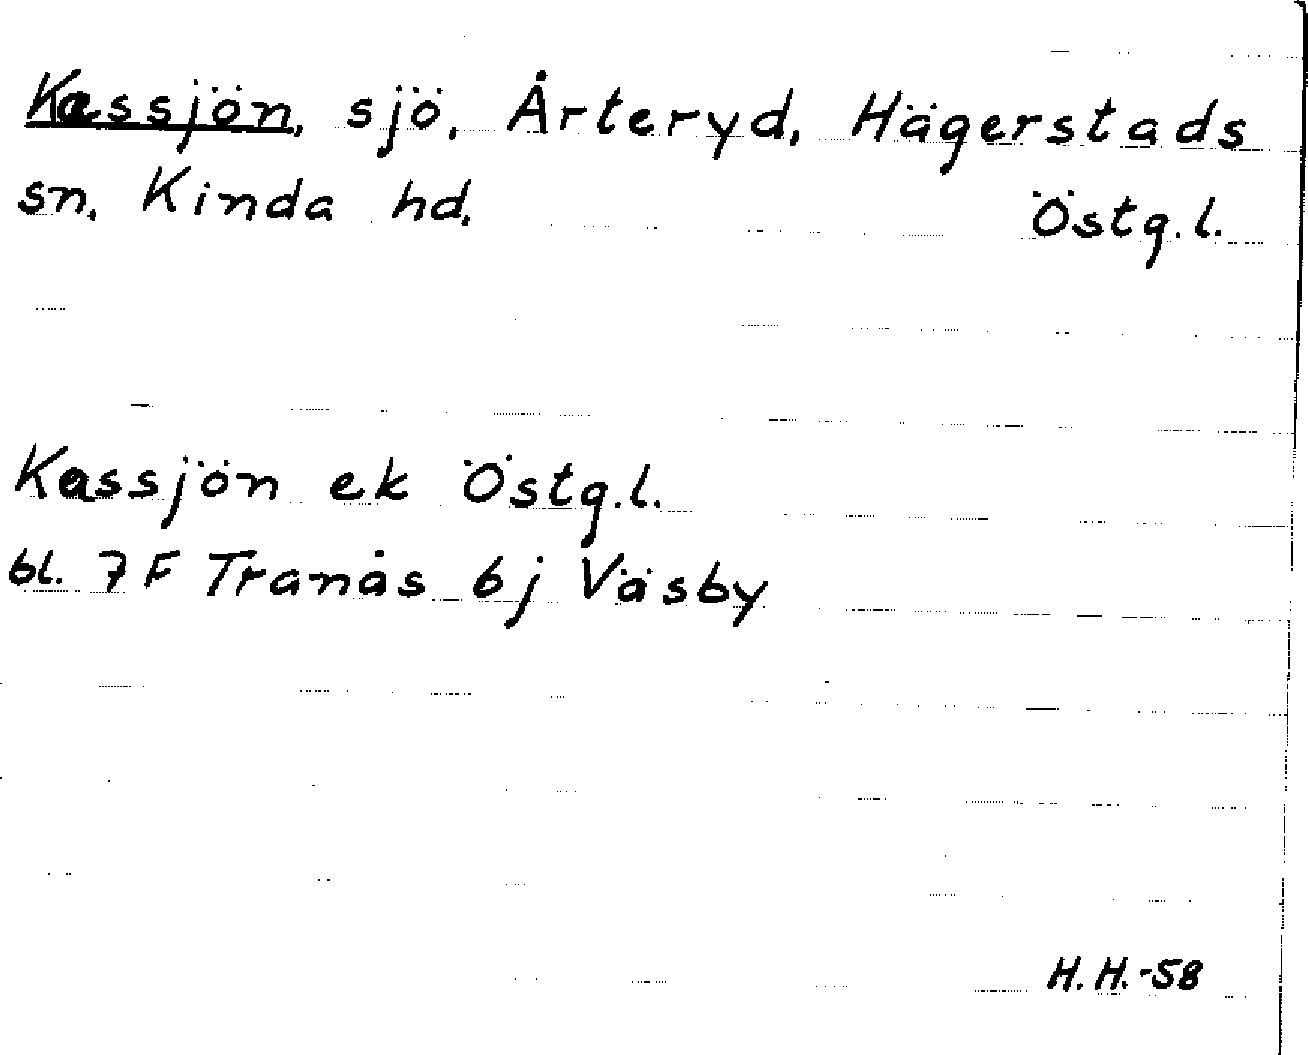 Kassjön, sjö, Årteryd, Hägerstads
sn. Kinda hd. Östg.l.
Kassjön ek Östg.l.
bl. 7F Tranås 6j Väsby
H.H.-58